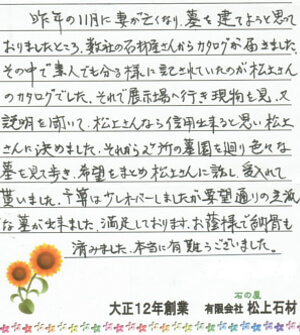 昨年の11月に妻が亡くなり、墓を建てようと思って
おりましたところ、数社の石材屋さんからカタログが届きました。
その中で素人でも分る様に記されていたのが松上さん
のカタログでした。それで展示場へ行き現物を見、又
説明を聞いて、松上さんなら信用出来ると思い松上
さんに決めました。それから2ヶ所の墓園を廻り色々な
墓を見て歩き、希望をまとめ松上さんに話し、受入れて
貰いました。予算は少しオーバーしましたが要望通りの立派
な墓が出来ました。満足しております。お蔭様で納骨も
済みました。本当に有難うございました。
石の屋
大正12年創業 有限会社 松上石材